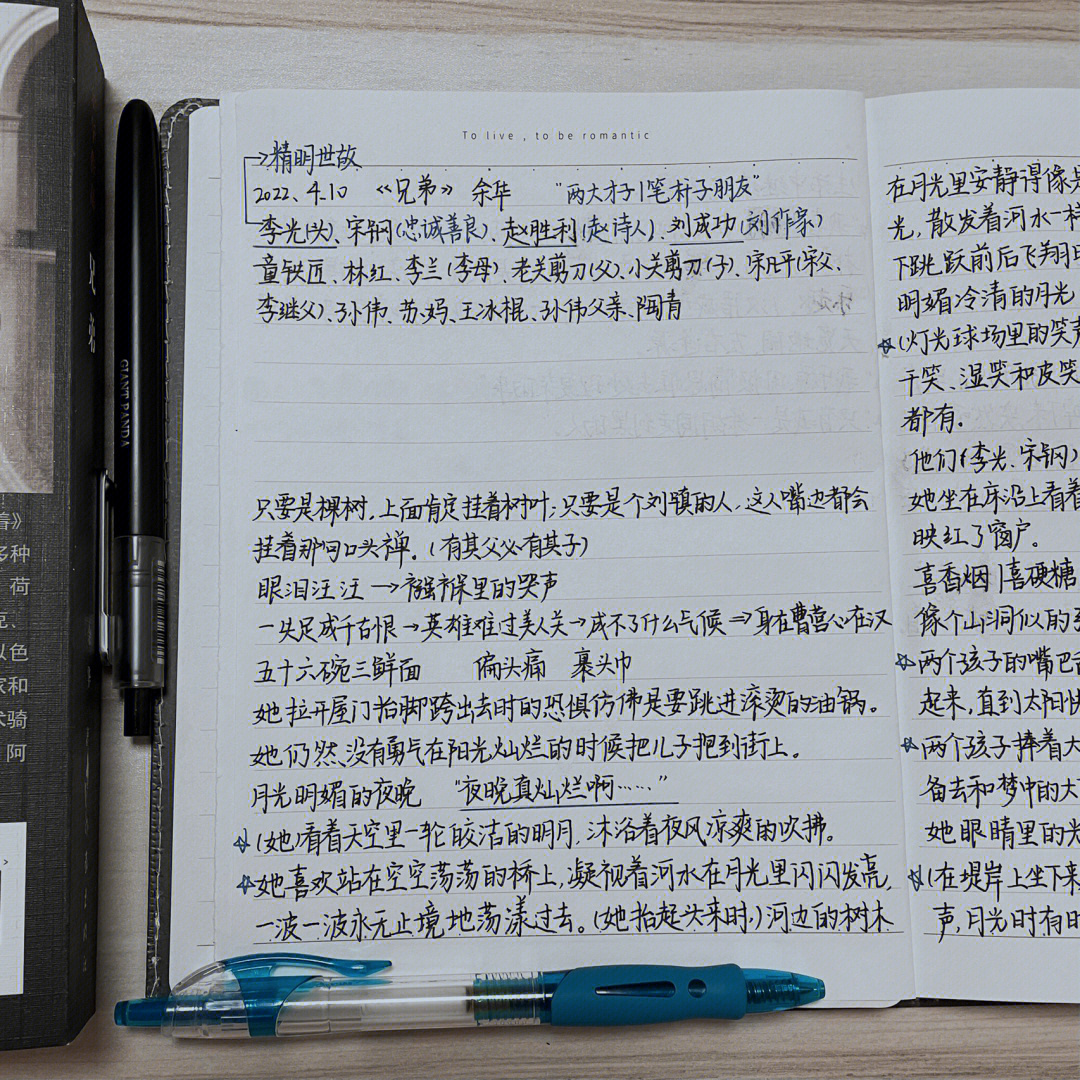 To live , to be romantic
→精明世故
2022.4.10 《兄弟》 余华 “两大才子|笔杆子朋友”
李光(头)、宋钢(忠诚善良)、赵胜利(赵诗人)、刘成功(刘作家)
童铁匠、林红、李兰(李母)、老关剪刀(父)、小关剪刀(子)、宋凡平(宋父、
李继父)、孙伟、苏妈、王冰棍、孙伟父亲、陶青
只要是棵树,上面肯定挂着树叶;只要是个刘镇的人,这人嘴边都会
挂着那句口头禅。(有其父必有其子)
眼泪汪汪→襁褓里的哭声
一失足成千古恨→英雄难过美人关→成不了什么气候⇒身在曹营心在汉
五十六碗三鲜面 偏头痛 裹头巾
她拉开屋门抬脚跨出去时的恐惧仿佛是要跳进滚烫的油锅。
她仍然没有勇气在阳光灿烂的时候把儿子抱到街上。
月光明媚的夜晚 “夜晚真灿烂啊……”
☆(她)看着天空里一轮皎洁的明月,沐浴着夜风凉爽的吹拂。
☆她喜欢站在空空荡荡的桥上,凝视着河水在月光里闪闪发亮,
一波一波永无止境地荡漾过去。(她抬起头来时,)河边的树木
在月光里安静得像是
光,散发着河水一样
下跳跃前后飞翔时
明媚冷清的月光
☆(灯光球场里的笑声
干笑、湿笑和皮笑
都有.
他们(李光、宋钢)
她坐在床沿上看着
映红了窗户.
喜香烟|喜硬糖
像个山洞似的
☆两个孩子的嘴巴
起来,直到太阳快
☆两个孩子捧着大
备去和梦中的大
她眼睛里的光
☆(在堤岸上坐下来
声,月光时有时
GIANT PANDA
兄弟
着》
多种
荷
克、
以色
家和
术骑
阿